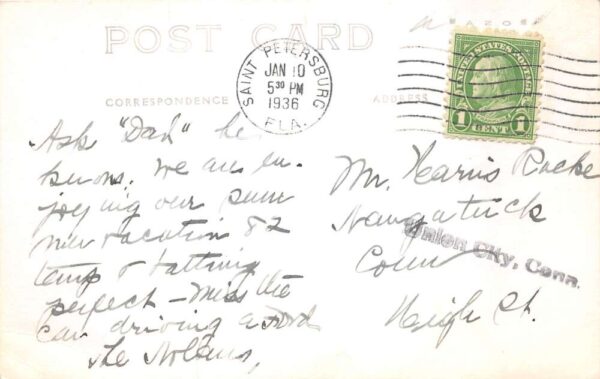 POST CARD
AZO
SAINT PETERSBURG
JAN 10
5 30 PM
1936
FLA.
UNITED STATES POSTAGE
1 CENT 1
CORRESPONDENCE
ADDRESS
Ask "Dad" he
knows. We are en-
joying our sum
mer vacation 82
temp &
perfect - Miss the
Car driving a Ford
The Nolans,
Mr. Harris Rocke
Naugatuck
Conn
High St.
Union City, Conn.